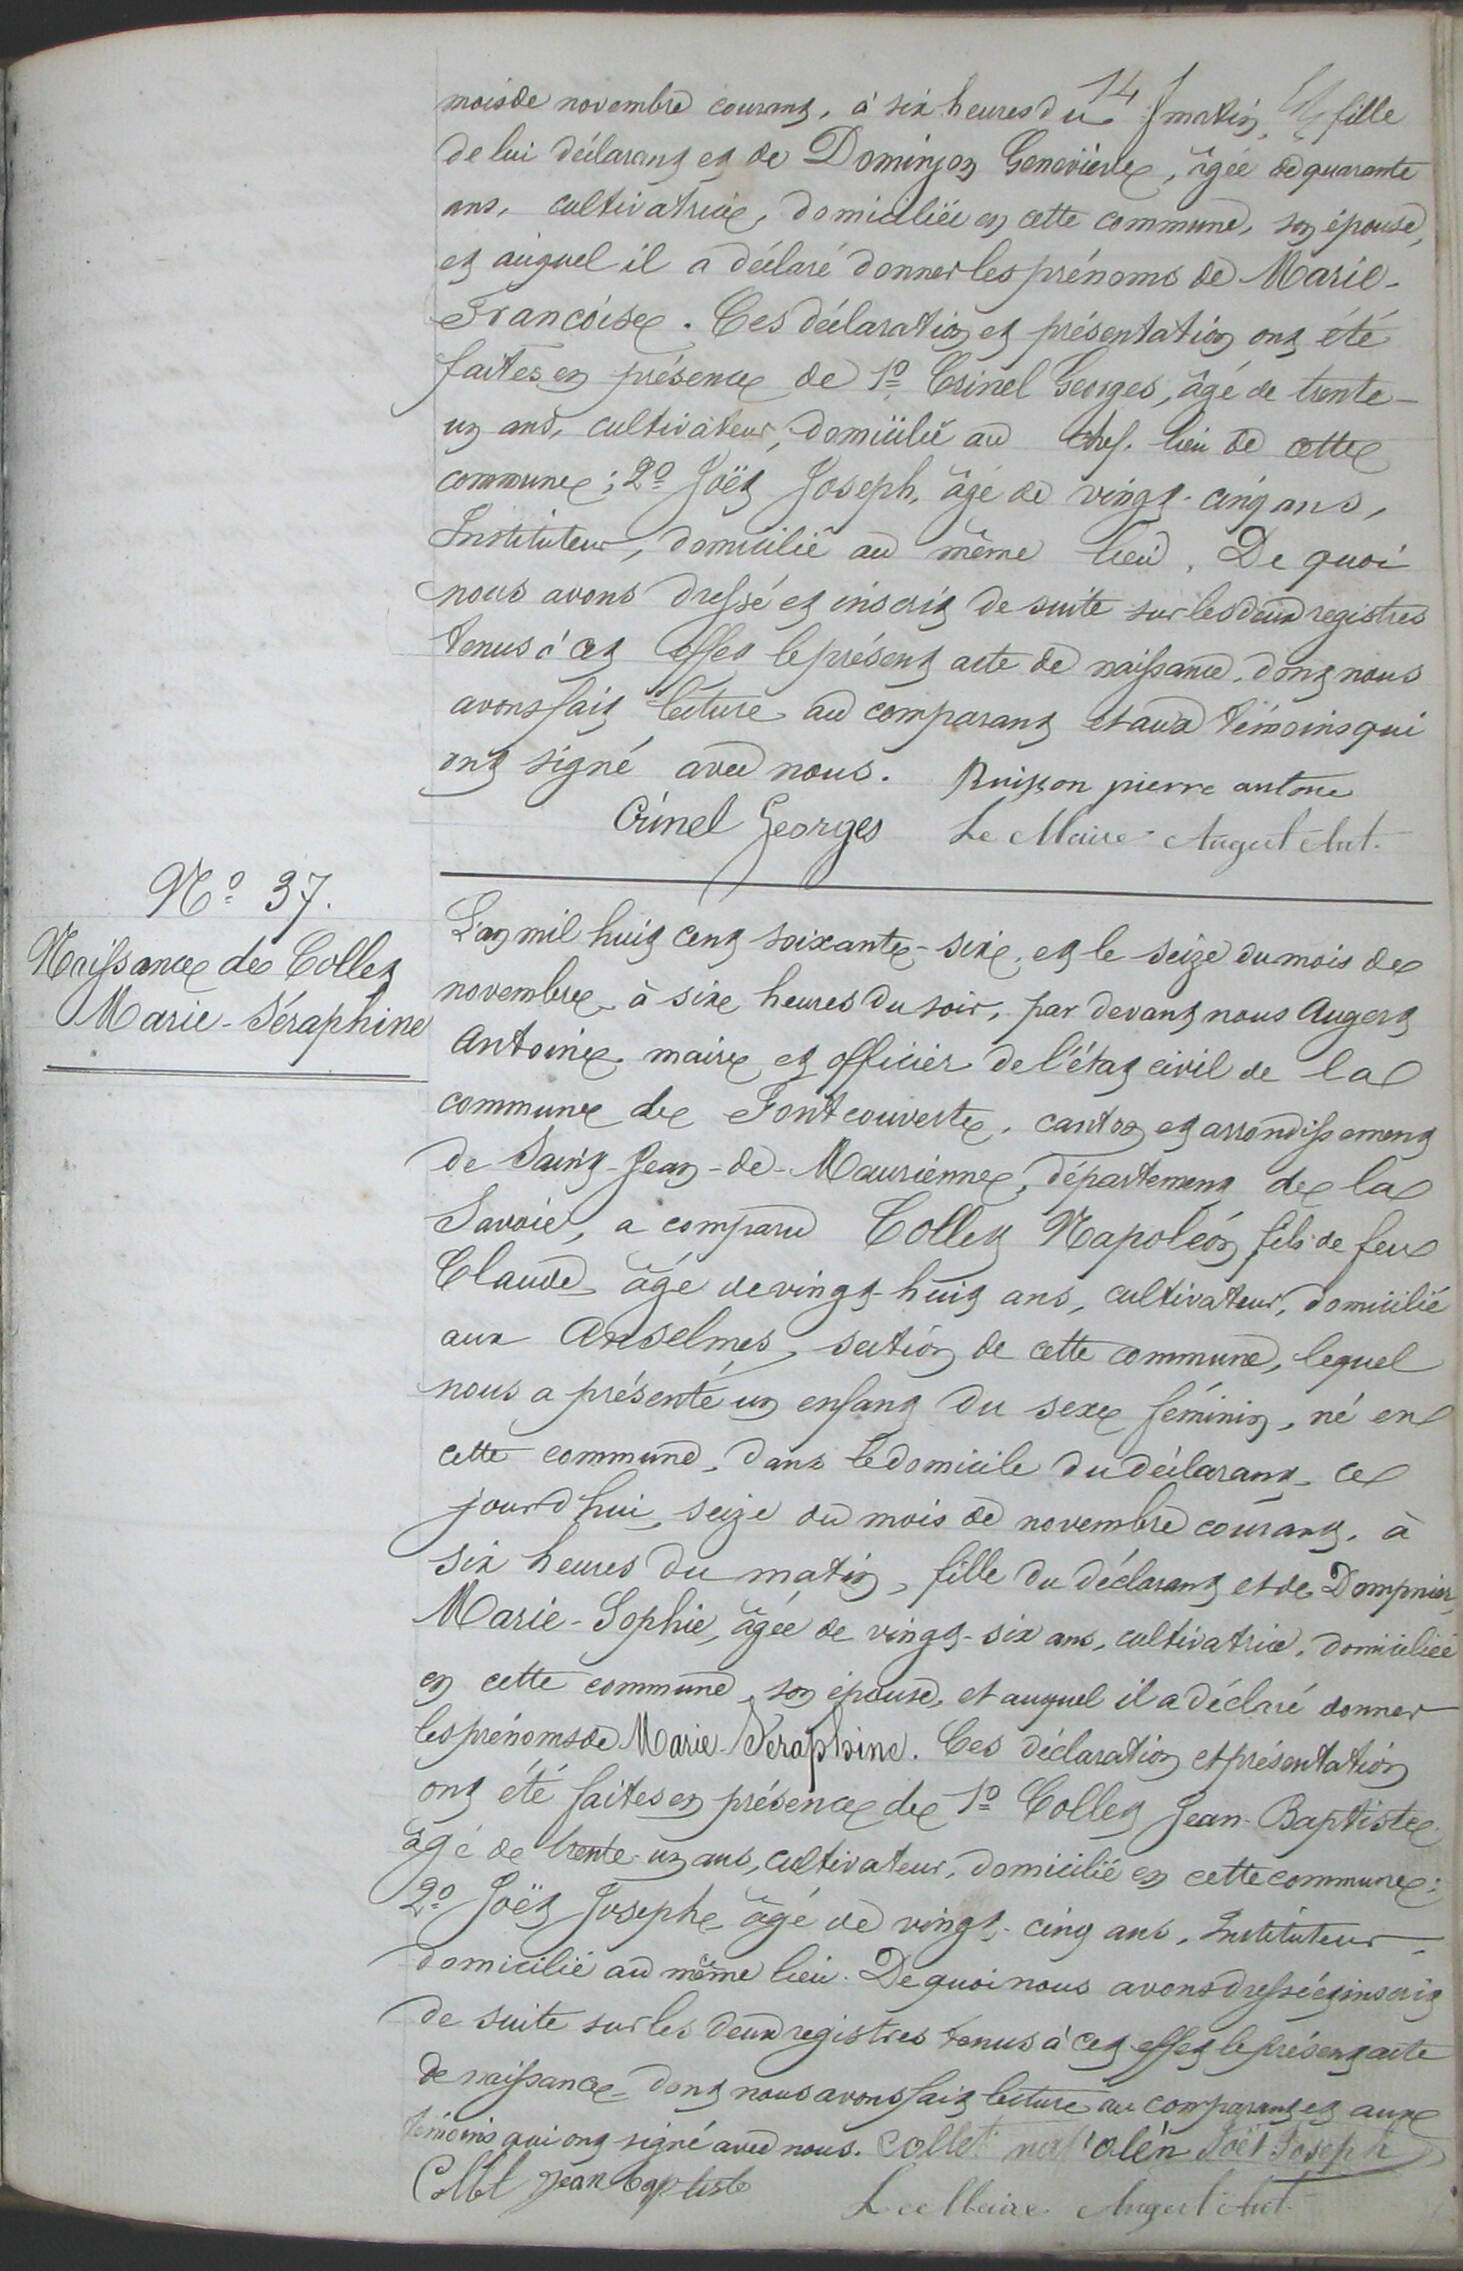 14
mois de novembre courant, à six heures du matin, fille
de lui déclarant et de Dominjon Geneviève, âgée de quarante
ans, cultivatrice, domiciliée en cette commune, son épouse,
et auquel il a déclaré donner les prénoms de Marie-
Françoise. Ces déclaration et présentation ont été
faites en présence de 1º Crinel Georges, âgé de trente-
un ans, cultivateur, domicilié au chef-lieu de cette
commune; 2º Joët Joseph, âgé de vingt-cinq ans,
Instituteur, domicilié au même lieu. De quoi
nous avons dressé et inscrit de suite sur les deux registres
tenus à cet effet le présent acte de naissance, dont nous
avons fait lecture au comparant et aux témoins qui
ont signé avec nous. Buisson pierre antone
Crinel Georges Le Maire Augert Ant.
Nº 37.
Naissance de Collet
Marie-Séraphine
L'an mil huit cent soixante-six, et le seize du mois de
novembre, à six heures du soir, par devant nous Augert
Antoine maire et officier de l'état civil de la
commune de Fontcouverte, canton et arrondissement
de Saint-Jean-de-Maurienne, département de la
Savoie, a comparu Collet Napoléon fils de feu
Claude, âgé de vingt-huit ans, cultivateur, domicilié
aux Anselmes, section de cette commune, lequel
nous a présenté un enfant du sexe féminin, né en
cette commune, dans le domicile du déclarant, ce
jourd'hui, seize du mois de novembre courant, à
six heures du matin, fille du déclarant et de Dompnier,
Marie-Sophie, âgée de vingt-six ans, cultivatrice, domiciliée
en cette commune, son épouse, et auquel il a déclaré donner
les prénoms de Marie-Séraphine. Ces déclaration et présentation
ont été faites en présence de 1º Collet Jean-Baptiste
âgé de trente-un ans, cultivateur, domicilié en cette commune;
2º Joët Joseph âgé de vingt-cinq ans, Instituteur,
domicilié au même lieu. De quoi nous avons dressé et inscrit
de suite sur les deux registres tenus à cet effet le présent acte
de naissance, dont nous avons fait lecture au comparant et aux
témoins qui ont signé avec nous. Collet nap'olén Joët Joseph
Collet jean baptiste Le Maire Augert Ant.